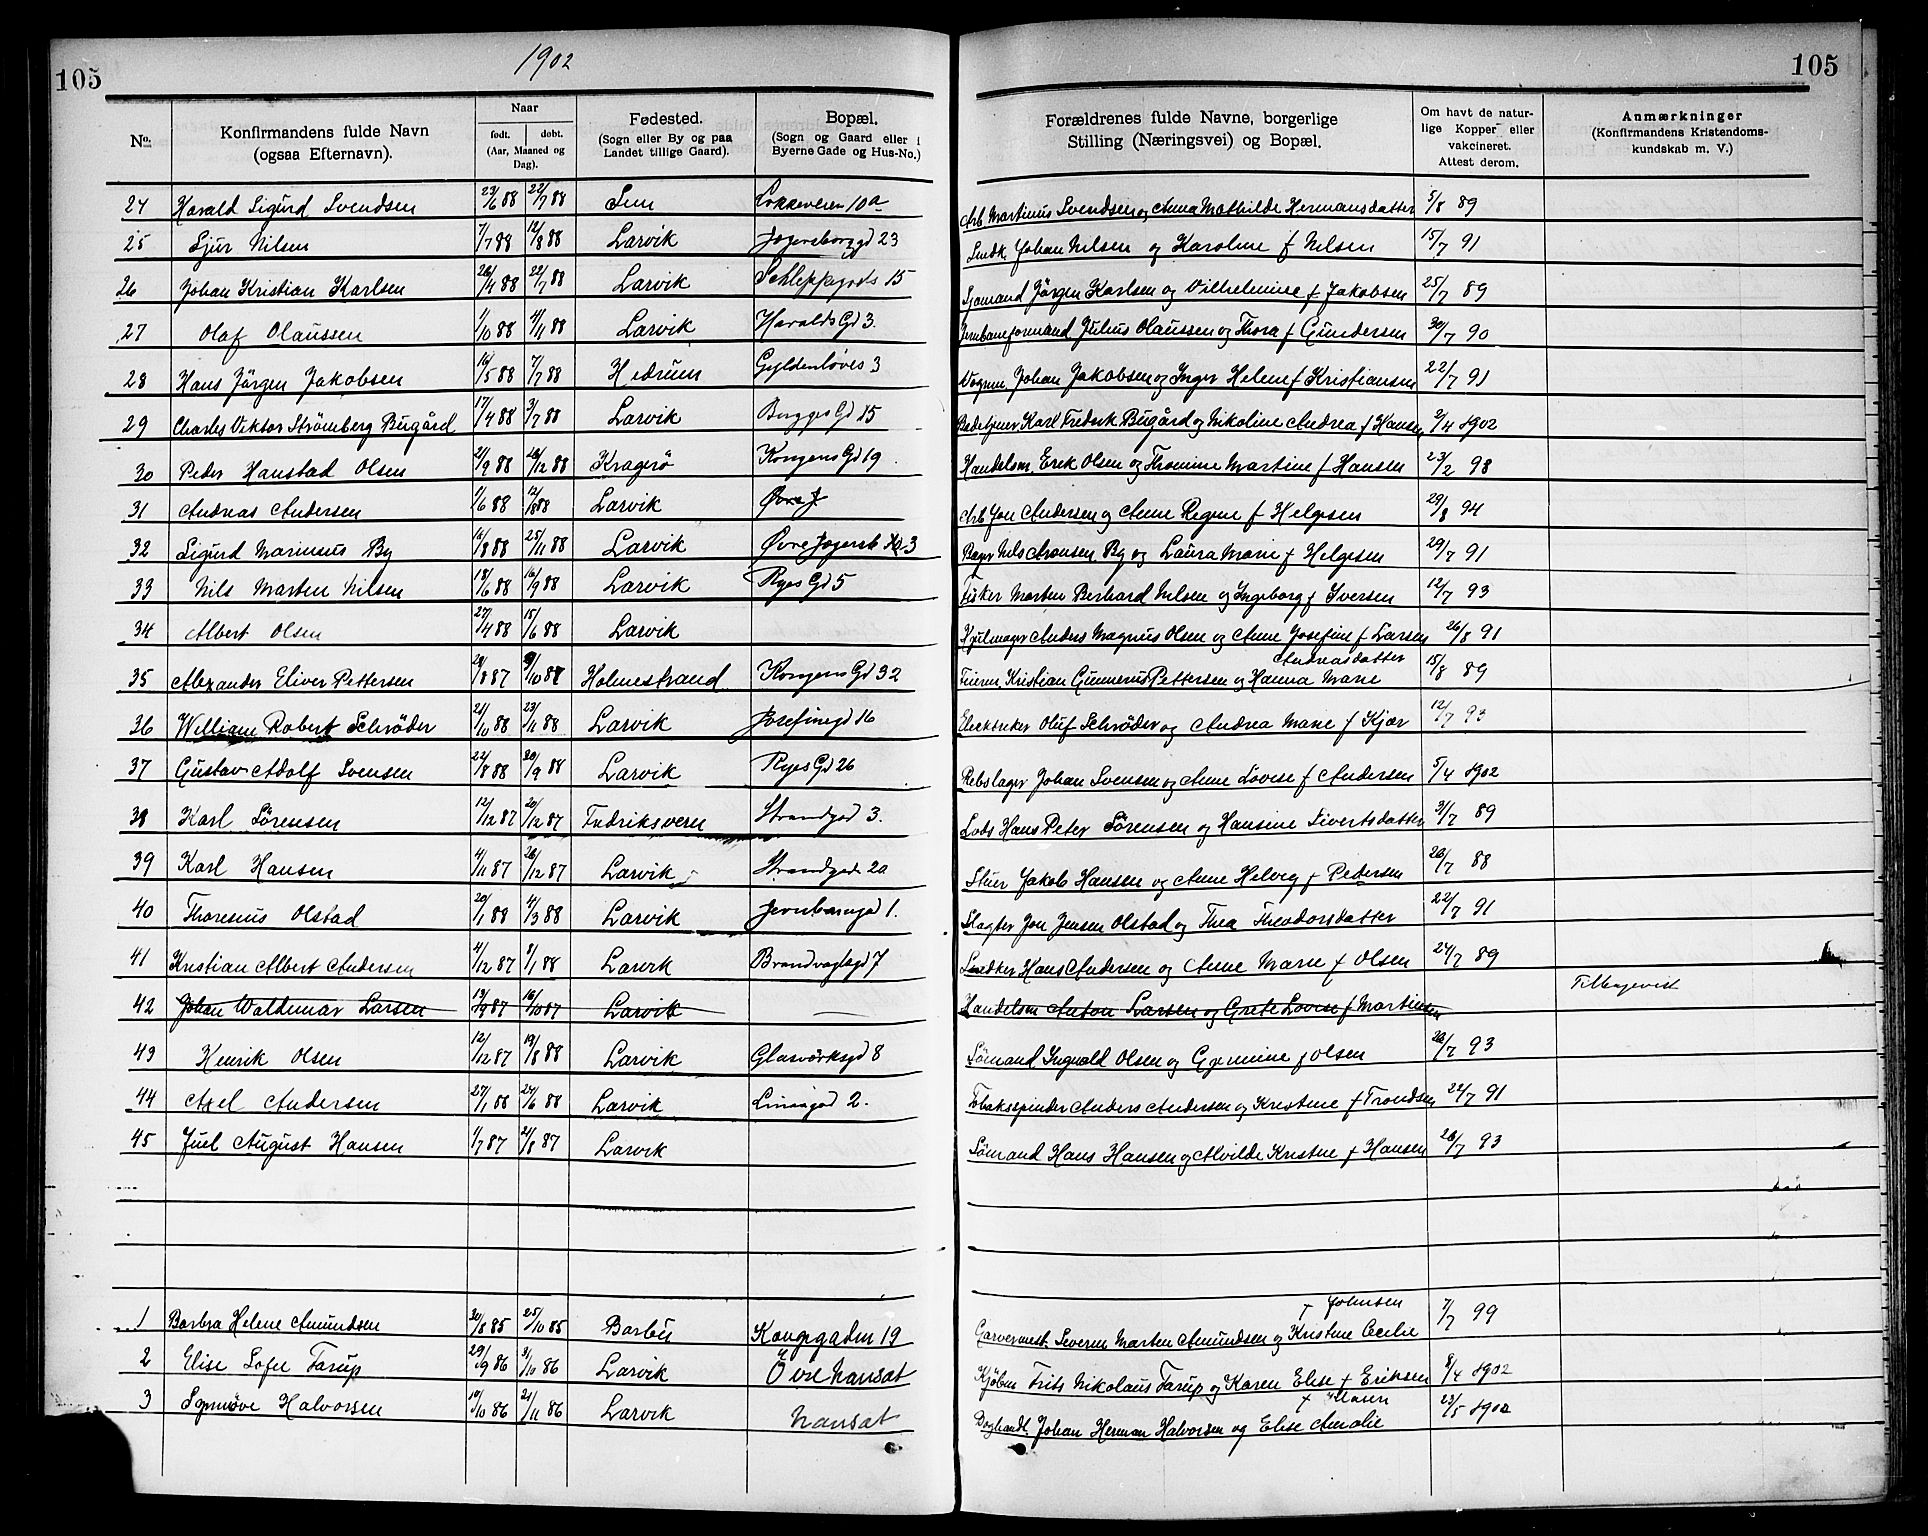 105
1902
105
No. Konfirmandens fulde Navn (ogsaa Efternavn). Naar født. døbt. (Aar, Maaned og Dag). Fødested. (Sogn eller By og paa Landet tillige Gaard). Bopæl. (Sogn og Gaard eller i Byerne Gade og Hus-No.) Forældrenes fulde Navne, borgerlige Stilling (Næringsvei) og Bopæl. Om havt de naturlige Kopper eller vakcineret. Attest derom. Anmærkninger (Konfirmandens Kristendomskundskab m. V.)
24 Harald Sigurd Svendsen 23/6 88 22/7 88 Løkkeveien 10a Arb Martinus Svendsen og Anna Mathilde Hermansdatter 5/8 89
25 Sjur Nilsen 7/7 88 12/8 88 Larvik Jegersborggd 23 Snedk Johan Nilsen og Karoline f Nilsen 15/7 91
26 Johan Kristian Karlsen 26/4 88 22/7 88 Larvik Schleppegrels 15 Sjomand Jörgen Karlsen og Vilhelmine f Jakobsen 25/7 89
27 Olaf Olaussen 1/10 88 4/11 88 Larvik Haralds Gd 3. Jernbaneformand Julius Olaussen og Thora f Gundersen 30/7 90
28 Hans Jörgen Jakobsen 16/5 88 7/7 88 Hedrum Gyldenløves 3 Vognm. Johan Jakobsen og Inger Helene f Kristiansen 22/7 91
29 Charles Viktor Strömberg Bugård 17/4 88 3/7 88 Larvik Bugges Gd 15 Karl Fredrik Bugård og Nikoline Andrea f Hansen 2/4 1902
30 Peder Hanstad Olsen 21/9 88 26/12 88 Kragerö Kongens Gd 19. Handelsm. Erik Olsen og Thomine Martine f Hansen 23/2 98
31 Andreas Andersen 1/6 88 12/8 88 Larvik Øvre J Arb Jon Andersen og Anne Regine f Helgesen 29/8 94
32 Sigurd Marinius By 16/8 88 25/11 88 Larvik Øvre Jegersb 3 Bager Nils Aronsen By og Laura Marie f Helgesen 29/7 91
33 Nils Marten Nilsen 18/6 88 16/9 88 Larvik Ryes Gd 5 Fisker Morten Berhard Nilsen og Ingeborg f Iversen 12/7 93
34 Albert Olsen 27/4 88 15/6 88 Larvik Hjulmager Anders Magnus Olsen og Anne Josefine f Larsen 26/8 91
35 Alexander Eliver Pettersen 28/8 87 9/10 87 Holmestrand Kongens Gd 32 Feierm. Kristian Gunnerus Pettersen og Hanna Marie Andreasdatter 15/8 89
36 William Robert Schröder 21/10 88 23/11 88 Larvik Josefinegd 16 Elecktriker Oluf Schröder og Andrea Marie f Kjær 12/7 93
37 Gustav Adolf Svensen 22/8 88 20/9 88 Larvik Ryes Gd 26 Rebslager Johan Svensen og Anne Lovise f Andersen 5/4 1902
38 Karl Sörensen 12/12 87 20/12 87 Fredriksvern Strandgad 3. Lods Hans Peter Sörensen og Hansine Sivertsdatter 31/7 89
39 Karl Hansen 4/11 87 26/12 87 Larvik Strandgad 20 Stuer Jakob Hansen og Anne Helvig f Pedersen 20/7 88
40 Thoresius Olstad 20/1 88 4/3 88 Larvik Jernbanegd 1. Slagter Jon Jensen Olstad og Thea Theodorsdatter 22/7 91
41 Kristian Albert Andersen 4/12 87 8/1 88 Larvik Brandvagtsgd 7 Snedker Hans Andersen og Anne Marie f Olsen 24/7 89
42 Johan Waldemar Larsen 13/9 87 16/10 87 Larvik Handelsm Anton Larsen og Grete Lovise f Martinsen Tilbagevist
43 Henrik Olsen 12/12 87 19/8 88 Larvik Glasværksgd 8 Sömand Ingvald Olsen og Germine f Olsen 28/7 93
44 Axel Andersen 27/1 88 24/6 88 Larvik Linaagad 2. Tobaksspinder Anders Andersen og Kristine f Trondsen 22/7 91
45 Juel August Hansen 1/7 87 21/8 87 Larvik Sömand Hans Hansen og Alvilde Kristine f Hansen 26/7 93
1 Barbra Helene Amundsen 30/8 85 25/10 85 Barbu Kongegaden 19 Garvermest. Severin Marten Amundsen og Kristine Cecilie f Johnsen 7/7 99
2 Elise Sofie Tarup 29/9 86 31/10 86 Larvik Övre Nansat Kjöbm Frits Nikolaus Tarup og Karen Elise f Eriksen 8/4 1902
3 Synnöve Halvorsen 10/10 86 21/11 86 Larvik Nansat Boghandl. Johan Herman Halvorsen og Elise Amalie 23/5 1902